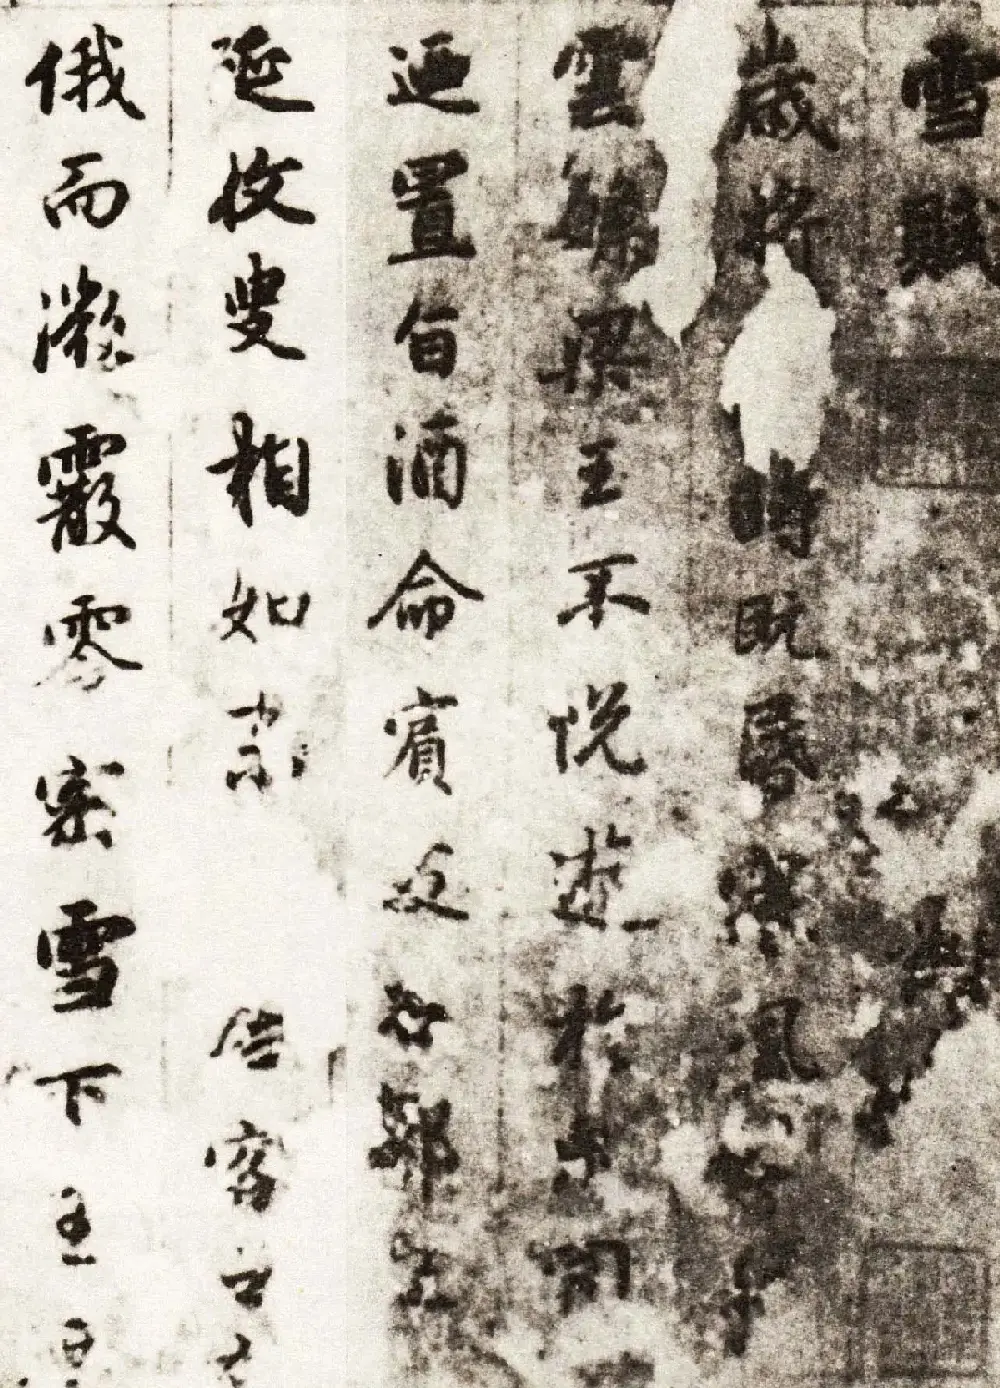 雪賦
歲將時既昏風
雲繁梁王不悅遊於園
迺置旨酒命賓友召鄒生
延枚叟相如末居客之右
俄而微霰零密雪下王